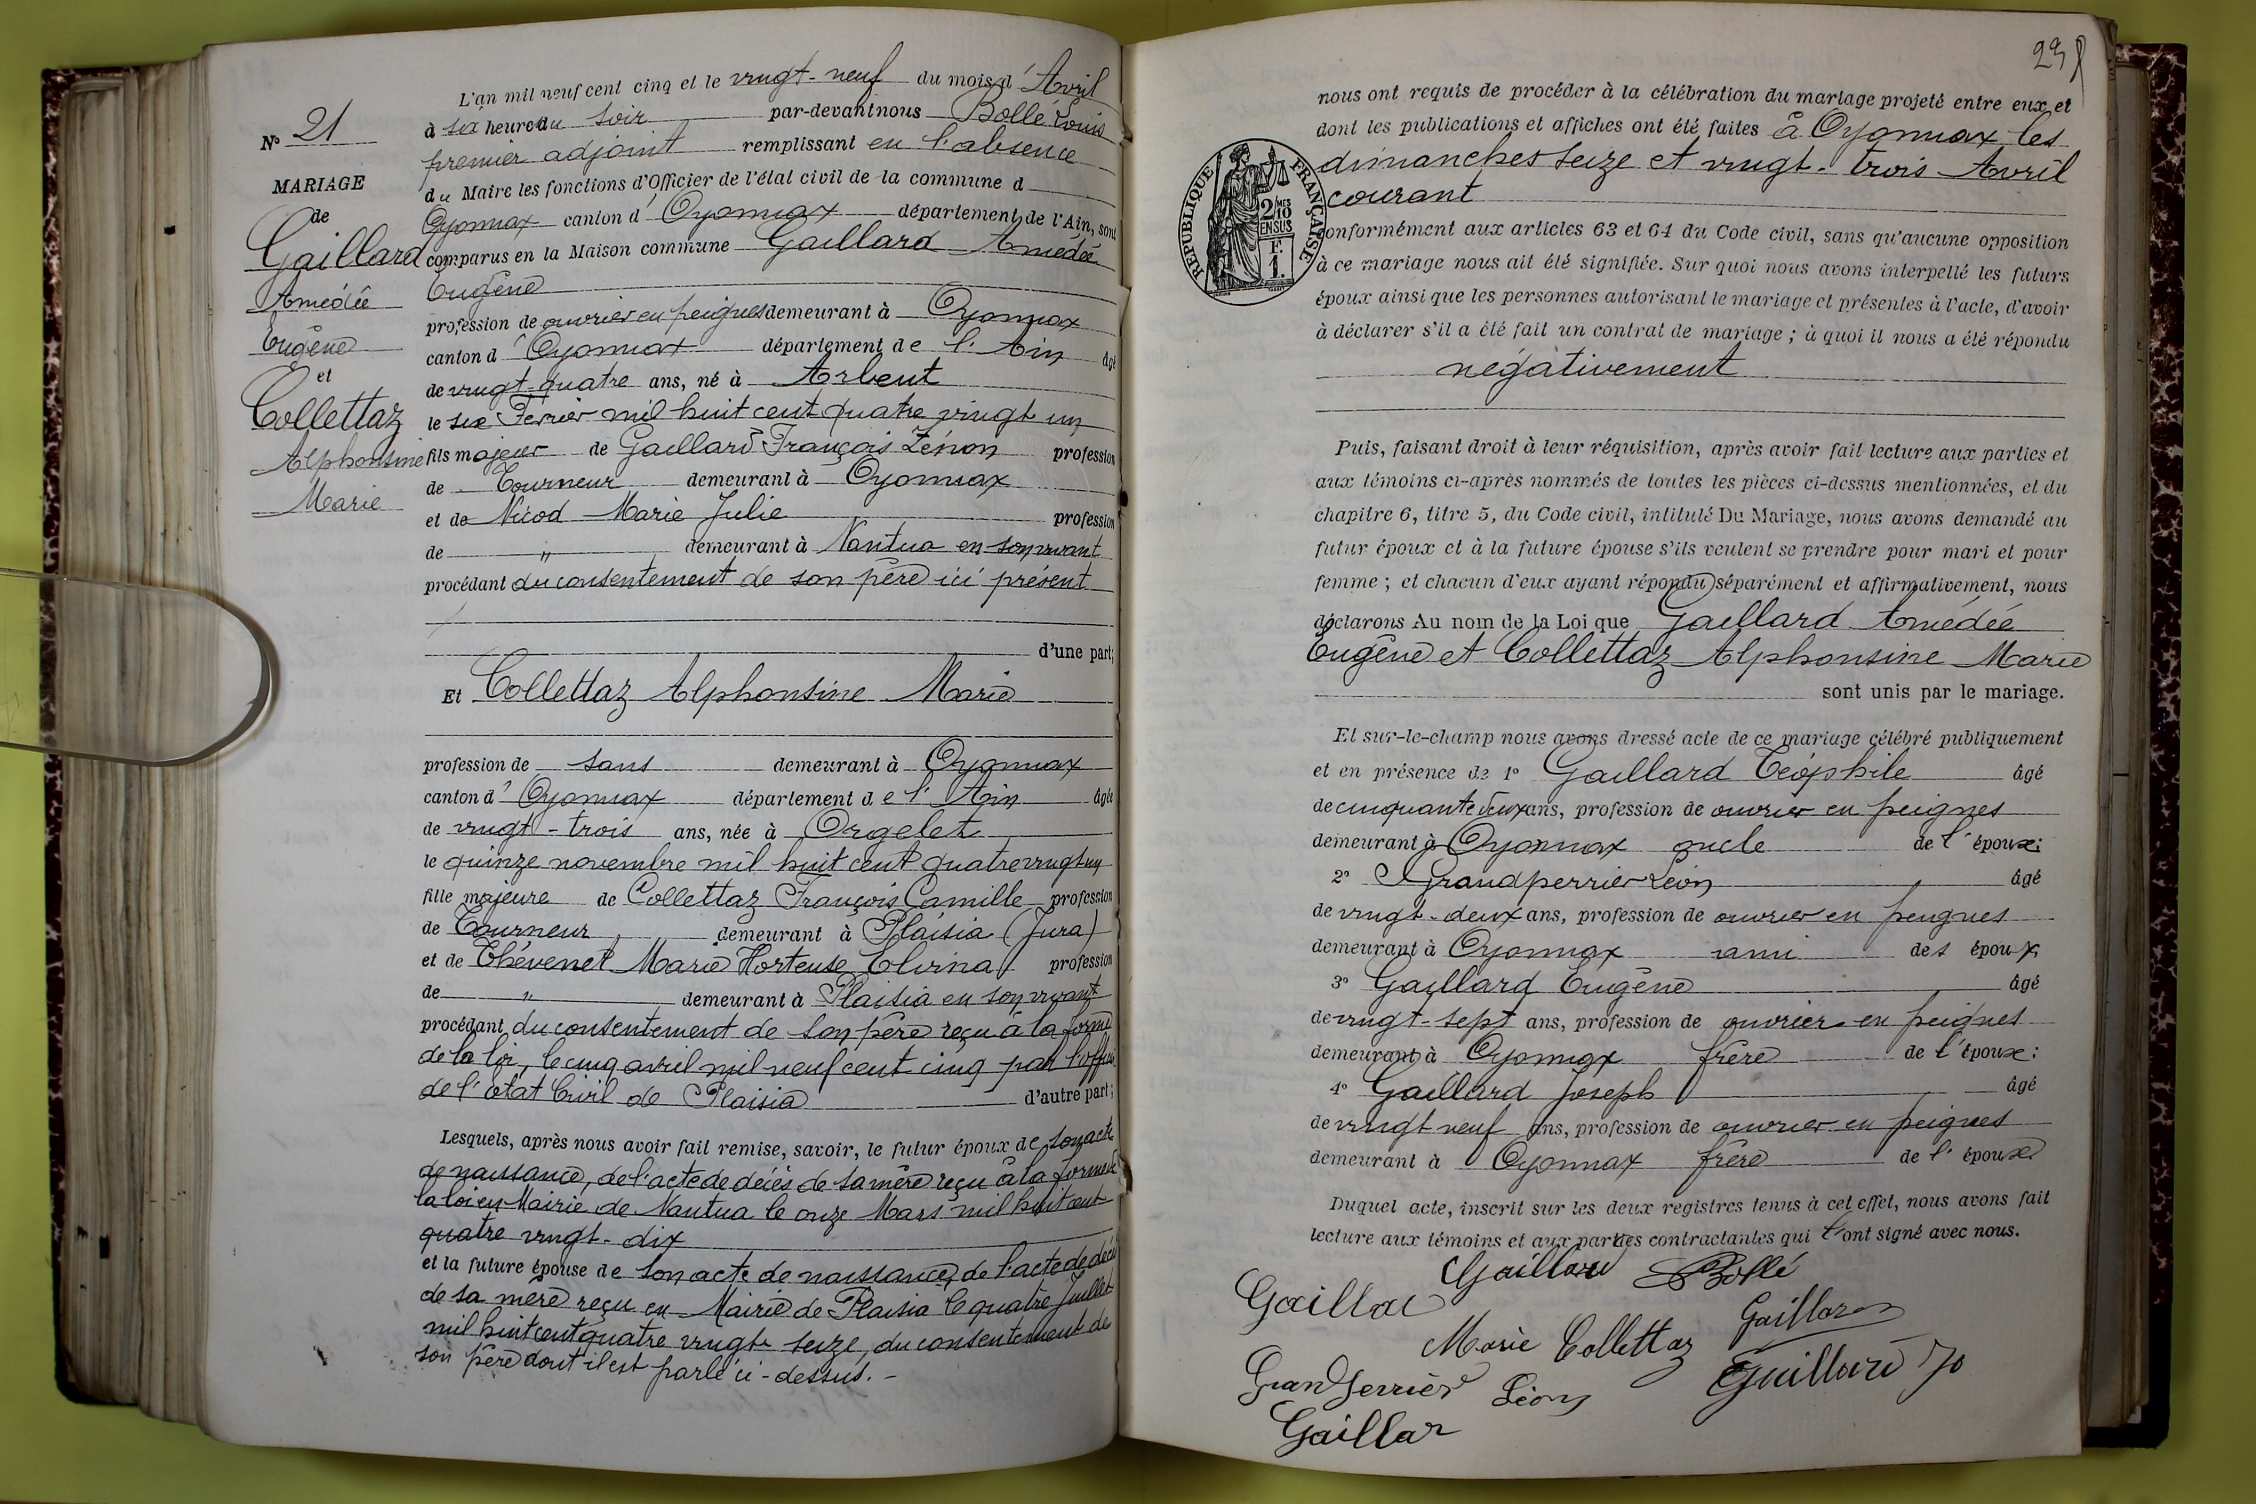 L'an mil neuf cent cinq et le vingt-neuf du mois d'Avril
à six heures du soir par-devant nous Bollé Louis
premier adjoint remplissant en l'absence
du Maire les fonctions d'Officier de l'état civil de la commune d
Oyonnax canton d'Oyonnax département de l'Ain, sont
comparus en la Maison commune Gaillard Amédée
Eugène
profession de ouvrier en peignes demeurant à Oyonnax
canton d'Oyonnax département de l'Ain âgé
de vingt-quatre ans, né à Arbent
le six Février mil huit cent quatre vingt un
fils majeur de Gaillard François Zénon profession
de Tourneur demeurant à Oyonnax
et de Nicod Marie Julie profession
de " demeurant à Nantua en son vivant
procédant du consentement de son père ici présent
d'une part;
Et Collettaz Alphonsine Marie
profession de sans demeurant à Oyonnax
canton d'Oyonnax département de l'Ain âgée
de vingt-trois ans, née à Orgelet
le quinze novembre mil huit cent quatre vingt un
fille majeure de Collettaz François Camille profession
de Tourneur demeurant à Plaisia (Jura)
et de Thévenet Marie Hortense Elvina profession
de " demeurant à Plaisia en son vivant
procédant du consentement de son père reçu à la forme
de la loi, le cinq avril mil neuf cent cinq par l'officier
de l'état Civil de Plaisia d'autre part;
Lesquels, après nous avoir fait remise, savoir, le futur époux de son acte
de naissance, de l'acte de décès de sa mère reçu à la forme de
la loi en Mairie de Nantua le onze Mars mil huit cent
quatre vingt-dix
et la future épouse de son acte de naissance, de l'acte de décès
de sa mère reçu en Mairie de Plaisia le quatre Juillet
mil huit cent quatre vingt seize, du consentement de
son père dont il est parlé ci-dessus. -
N° 21
MARIAGE
de
Gaillard
Amédée
Eugène
et
Collettaz
Alphonsine
Marie
238
nous ont requis de procéder à la célébration du mariage projeté entre eux et
dont les publications et affiches ont été faites à Oyonnax les
dimanches seize et vingt-trois Avril
courant
conformément aux articles 63 et 64 du Code civil, sans qu'aucune opposition
à ce mariage nous ait été signifiée. Sur quoi nous avons interpellé les futurs
époux ainsi que les personnes autorisant le mariage et présentes à l'acte, d'avoir
à déclarer s'il a été fait un contrat de mariage ; à quoi il nous a été répondu
négativement
RÉPUBLIQUE FRANÇAISE
2/10
MES
EN SUS
F.
1.
Puis, faisant droit à leur réquisition, après avoir fait lecture aux parties et
aux témoins ci-après nommés de toutes les pièces ci-dessus mentionnées, et du
chapitre 6, titre 5, du Code civil, intitulé Du Mariage, nous avons demandé au
futur époux et à la future épouse s'ils veulent se prendre pour mari et pour
femme ; et chacun d'eux ayant répondu séparément et affirmativement, nous
déclarons Au nom de la Loi que Gaillard Amédée
Eugène et Collettaz Alphonsine Marie
sont unis par le mariage.
Et sur-le-champ nous avons dressé acte de ce mariage célébré publiquement
et en présence de 1° Gaillard Téophile âgé
de cinquante deux ans, profession de ouvrier en peignes
demeurant à Oyonnax oncle de l'époux;
2° Grandperrier Léon âgé
de vingt-deux ans, profession de ouvrier en peignes
demeurant à Oyonnax ami des époux
3° Gaillard Eugène âgé
de vingt-sept ans, profession de ouvrier en peignes
demeurant à Oyonnax frère de l'époux;
4° Gaillard Joseph âgé
de vingt neuf ans, profession de ouvrier en peignes
demeurant à Oyonnax frère de l'époux
Duquel acte, inscrit sur les deux registres tenus à cet effet, nous avons fait
lecture aux témoins et aux parties contractantes qui l'ont signé avec nous.
Gaillard Bollé
Gaillar
Marie Collettaz Gaillard
Grandperrier Léon Gaillard Jo
Gaillar